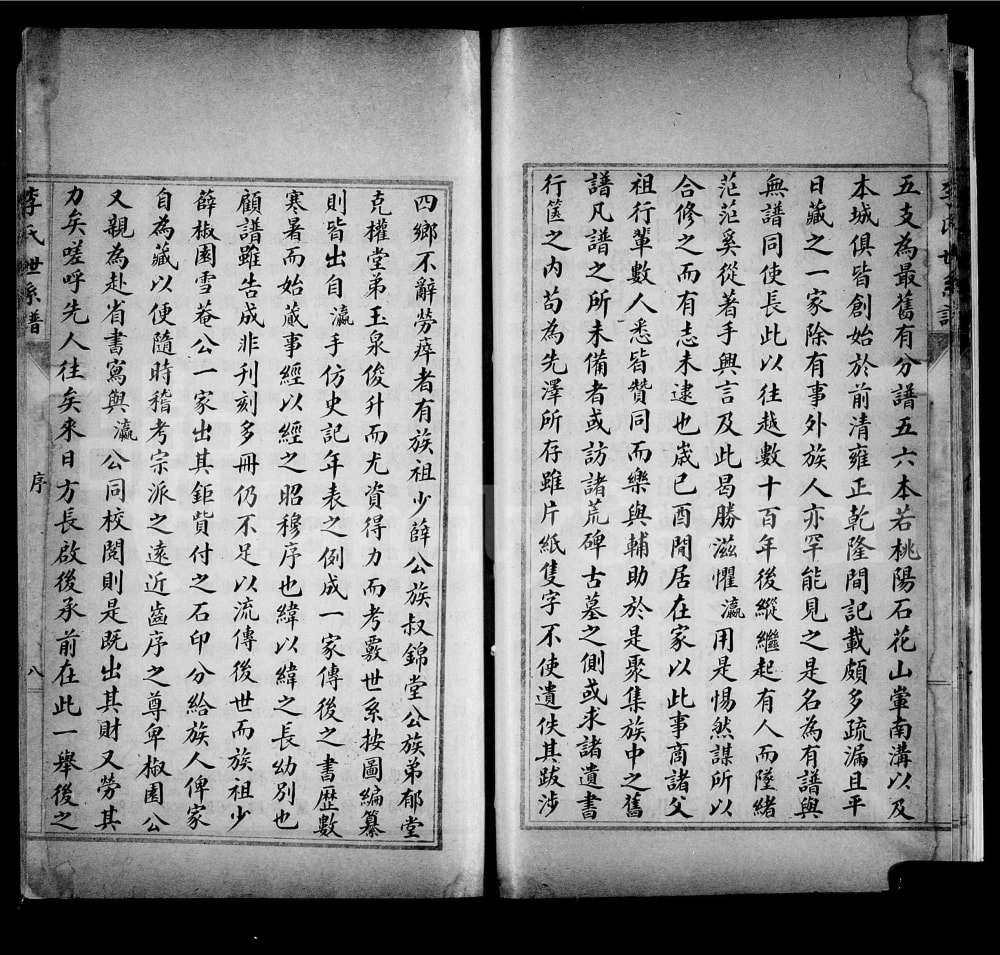 五支為最舊有分譜五六本若桃陽石花山黨南溝以及
本城俱皆創始於前清雍正乾隆間記載頗多疏漏且平
日藏之一家除有事外族人亦罕能見之是名為有譜與
無譜同使長此以往越數十百年後縱繼起有人而墜緒
茫茫奚從著手興言及此曷勝滋懼瀛用是惕然謀所以
合修之而有志未逮也歲己酉閒居在家以此事商諸父
祖行輩數人悉皆贊同而樂與輔助於是聚集族中之舊
譜凡譜之所未備者或訪諸荒碑古墓之側或求諸遺書
行篋之內苟為先澤所存雖片紙隻字不使遺佚其跋涉
四鄉不辭勞瘁者有族祖少薛公族叔錦堂公族弟郁堂
克權堂弟玉泉俊升而尤資得力而考覈世系按圖編纂
則皆出自瀛手仿史記年表之例成一家傳後之書歷數
寒暑而始蕆事經以經之昭穆序也緯以緯之長幼別也
顧譜雖告成非刊刻多冊仍不足以流傳後世而族祖少
薛椒園雪菴公一家出其鉅貲付之石印分給族人俾家
自為藏以便隨時稽考宗派之遠近齒序之尊卑椒園公
又親為赴省書寫與瀛公同校閱則是既出其財又勞其
力矣嗟呼先人往矣來日方長啟後承前在此一舉後之
李氏世系譜
序
八